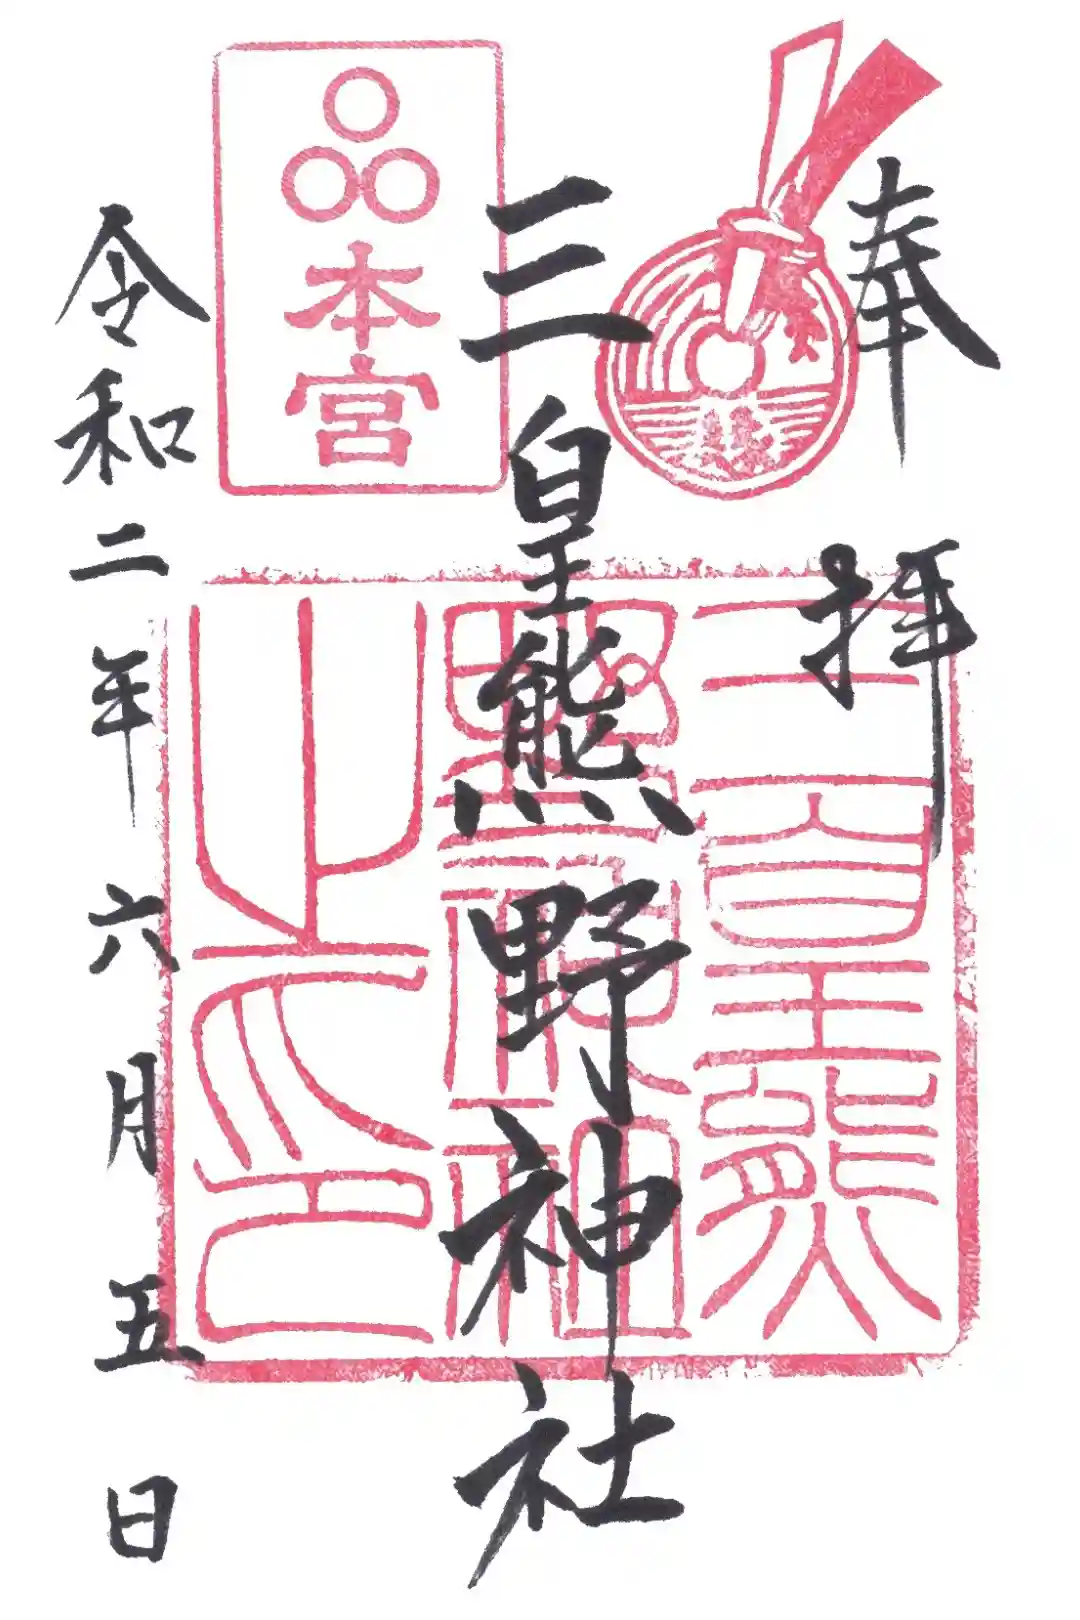 奉拝
三皇熊野神社
本宮
令和二年六月五日
三皇熊
野神社
之印